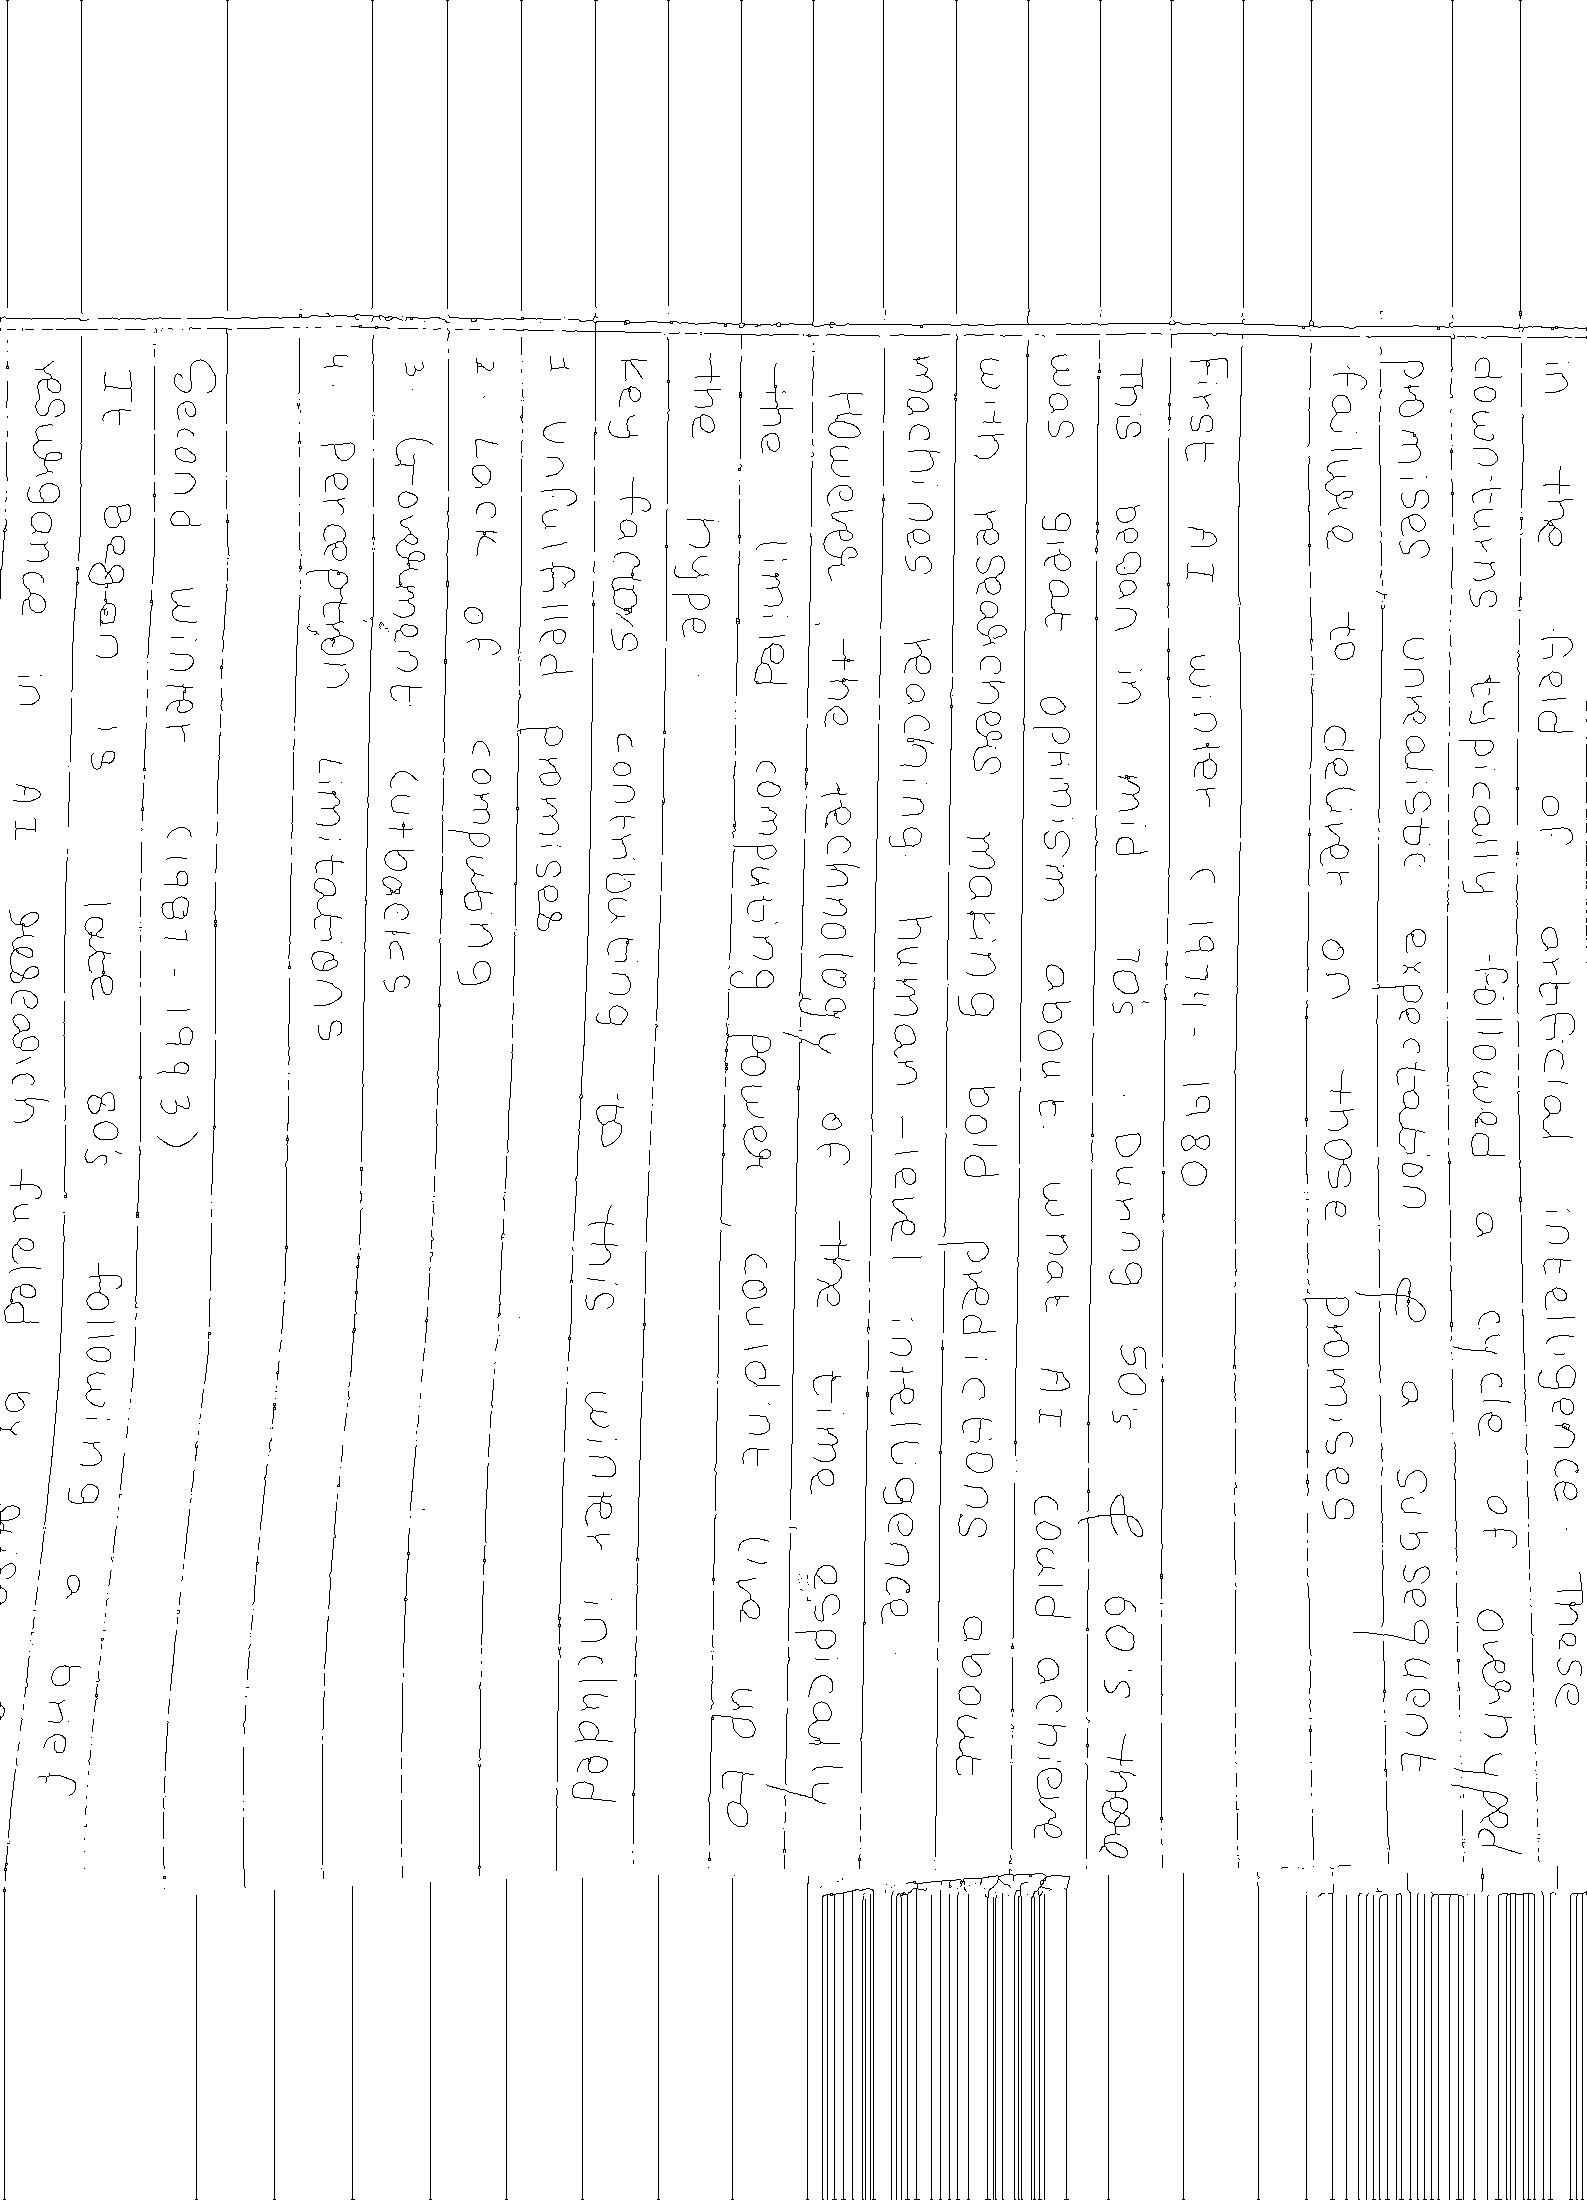 in the field of artificial intelligence. These
downturns typically followed a cycle of overhyped
promises unrealistic expectation & a subsequent
failure to deliver on those promises
First AI winter ( 1974 - 1980
This began in mid 70's. During 50's & 60's there
was great optimism about what AI could achieve
with researches making bold predictions about
machines reaching human-level intelligence.
However the technology of the time espically
the limited computing power couldnt live up to
the hype.
Key factors contributing to this winter included
1 Unfulfilled promises
2. Lack of computing
3. Government Cutbacks
4. Perceptron Limitations
Second Winter (1987 - 1993)
It Began is late 80's following a brief
resurgance in AI research fueled by